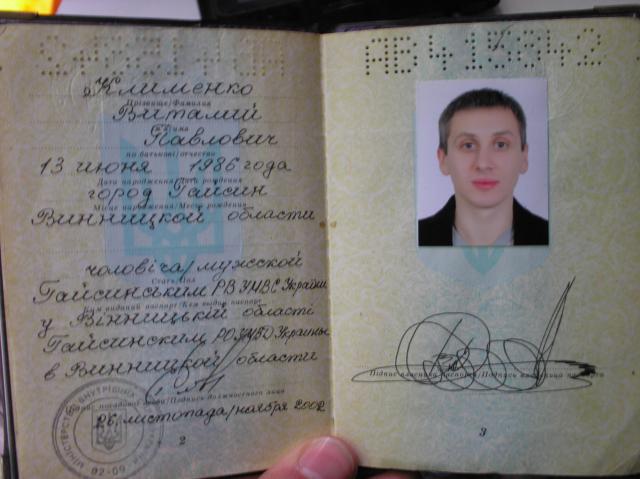 Клименко
Прізвище/Фамилия
Виталий
Ім'я/Имя
Павлович
по батькові/отчество
13 июня 1986 года
Дата народження/Дата рождения
город Гайсин
Місце народження/Место рождения
Винницкой области
чоловіча/мужской
Стать/Пол
Гайсинським РВ УМВС України
Ким виданий паспорт/Кем выдан паспорт
у Вінницькій області
Гайсинским РО УМВД Украины
в Винницкой области
підпис посадової особи/Подпись должностного лица
26, листопада/ноября 2002
МІНІСТЕРСТВО ВНУТРІШНІХ
02-09
2
АВ415342
Підпис власника паспорта/Подпись владельца паспорта
3